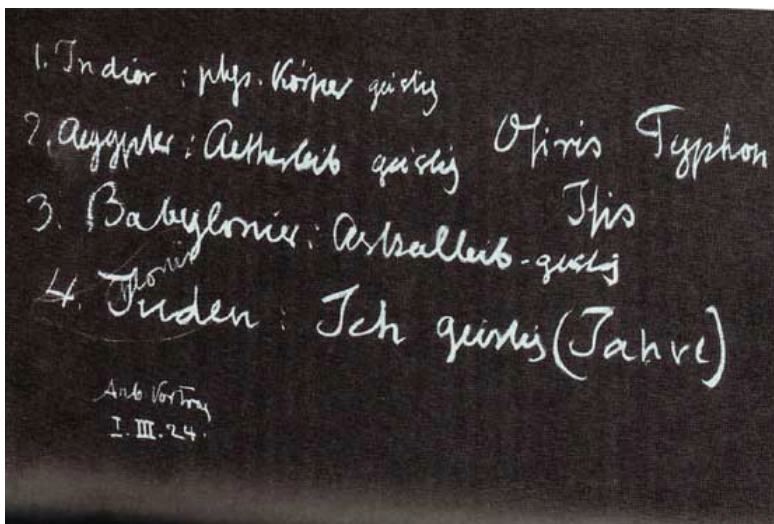 1. Indier : phys. Körper geistig
2. Aegypter : Aetherleib geistig Osiris Typhon
Isis
3. Babylonier : Astralleib - geistig
4. Juden : Ich geistig (Jahve)
Arb. Vortrag
I. III. 24.